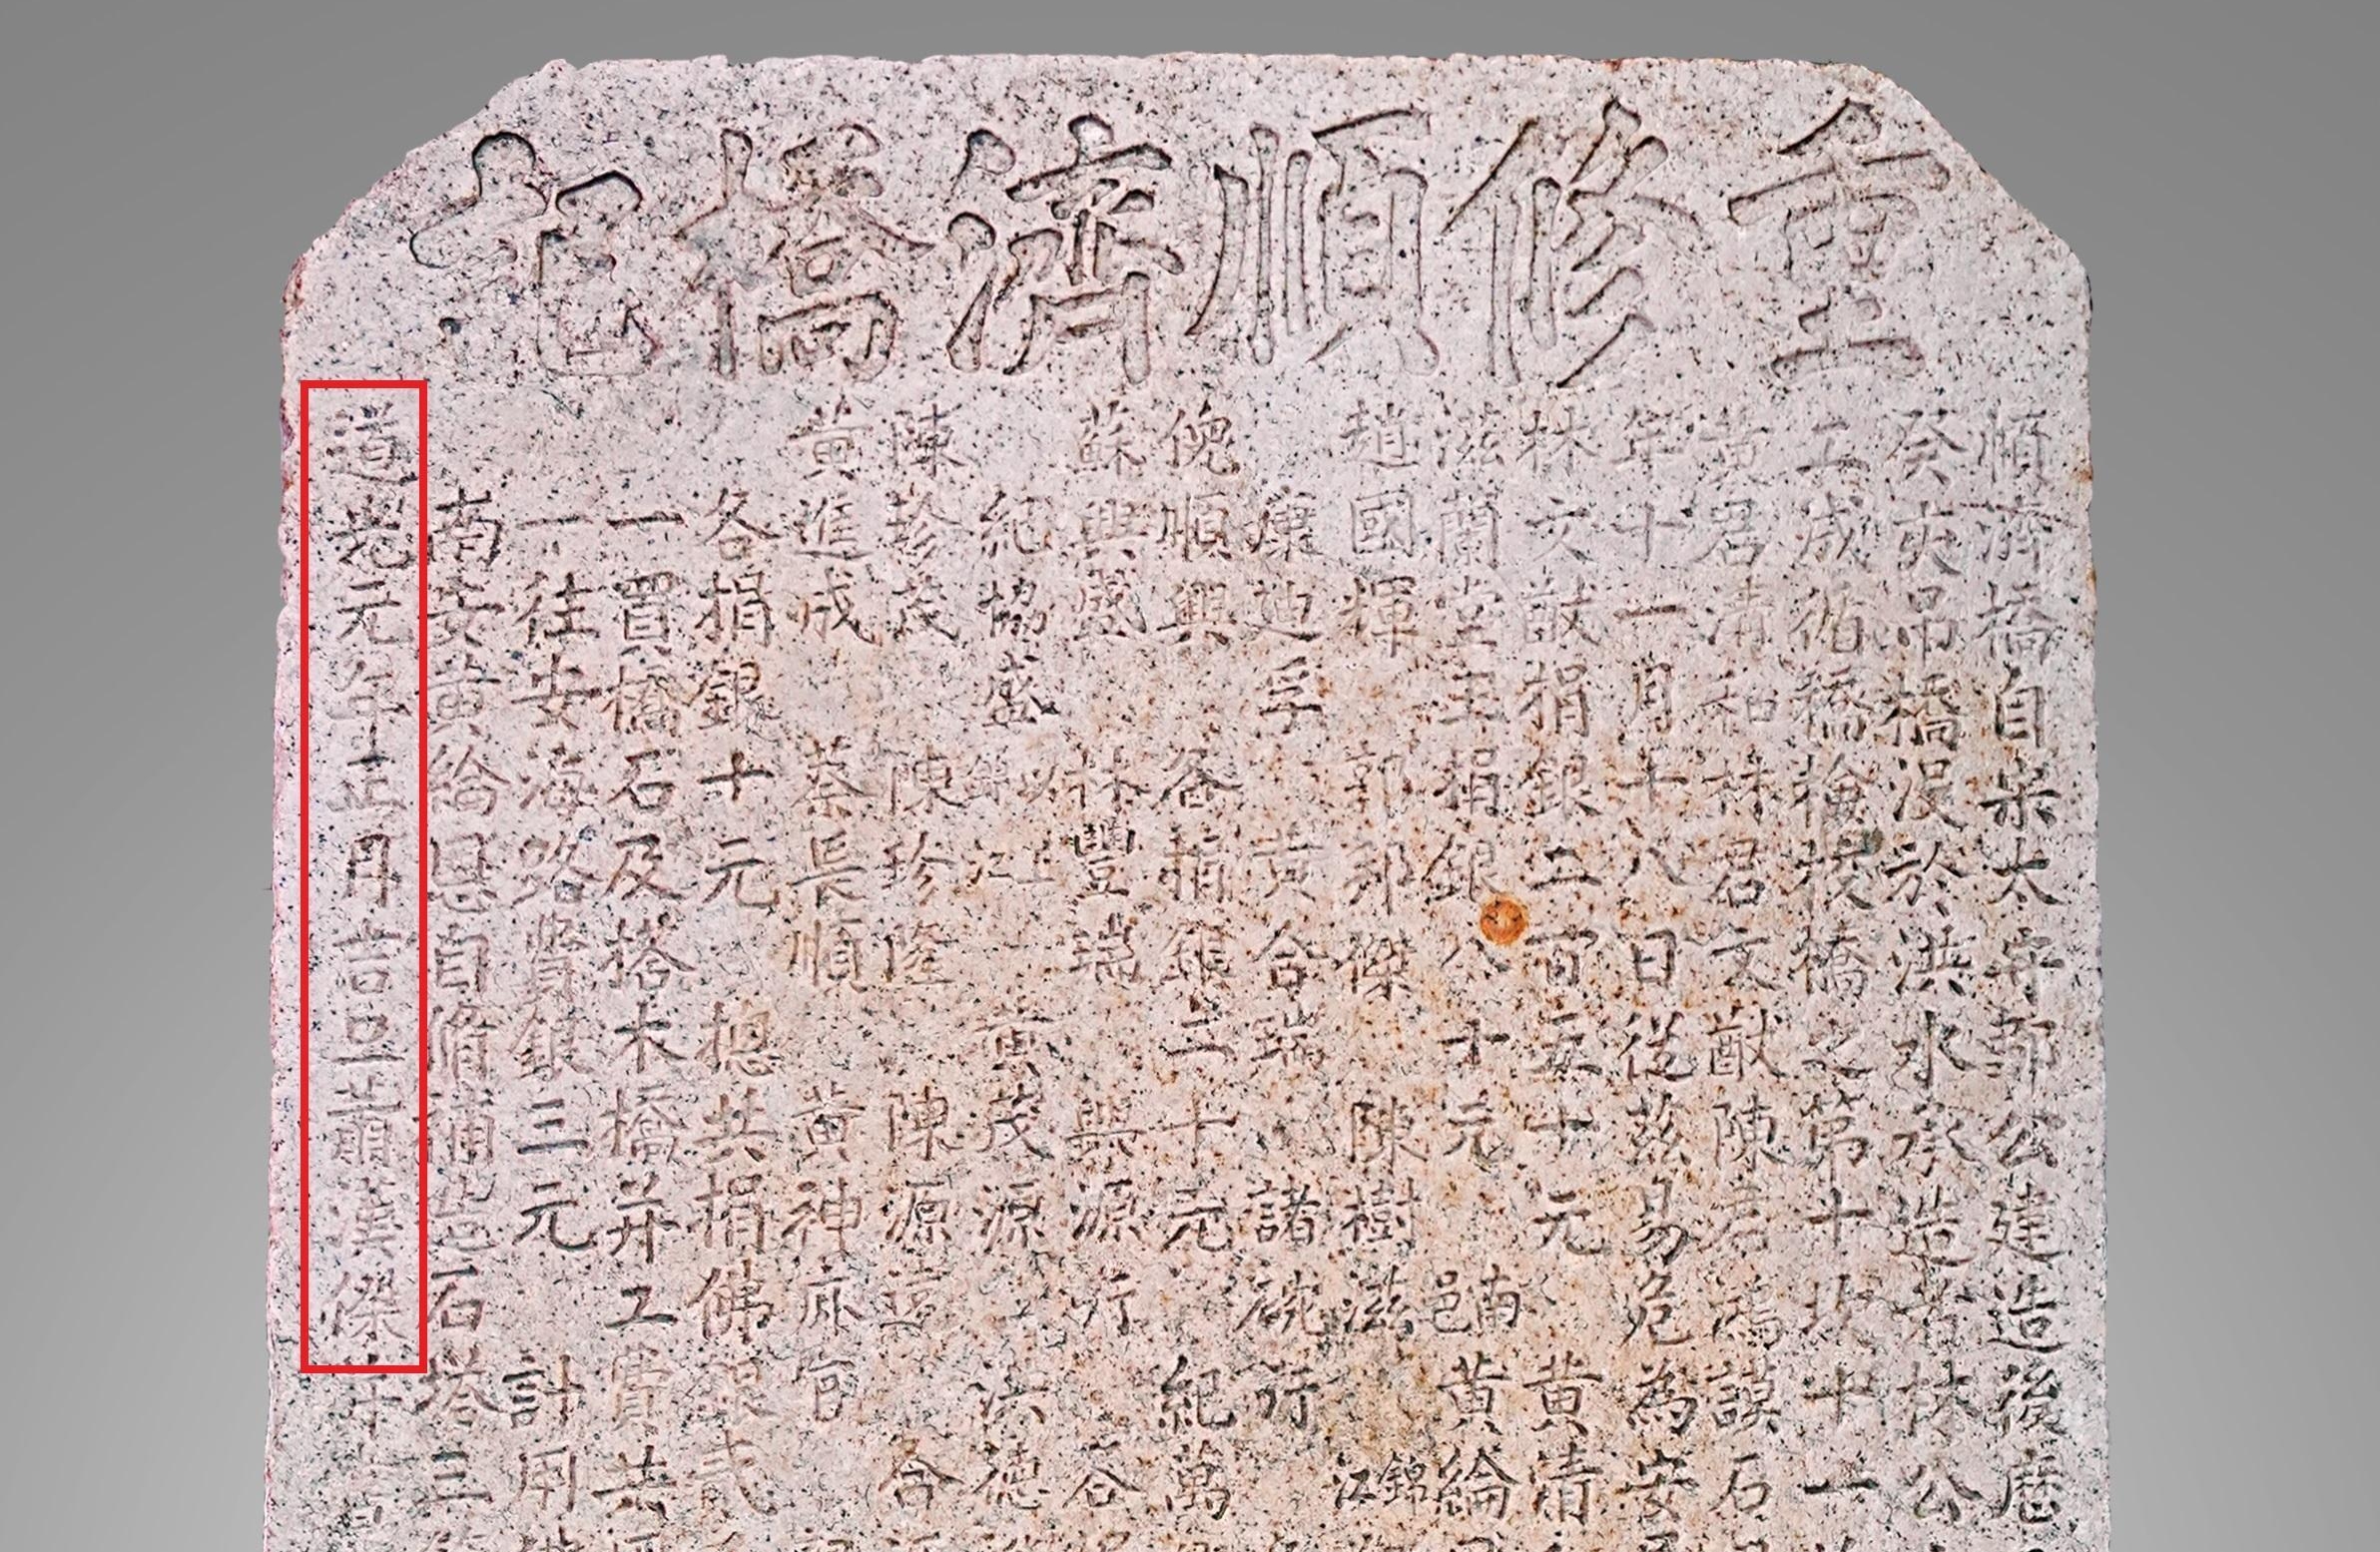 重修順濟橋記
順濟橋自宋太守鄒公建造後歷
癸亥吊橋沒於洪水承造者林公
二歲循橋檢橋之第十坎十一
黃君清和林君文猷陳君鴻謨石
年十一月十八日從茲易危為安
林文猷捐銀二百五十元 黃清
滋蘭堂王捐銀六十元 南邑 黃綸
趙國輝 郭邦傑 陳樹滋 錦江
康迪孚 黃合瑞 諸碗行
倪順興 各捐銀二十元 紀萬
蘇興盛 林豐瑞 興源行 各
紀協盛 錦江 黃茂源 洪德
陳珍茂 陳珍隆 陳源 合
黃進成 蔡長順 黃神庥官
各捐銀十元 摠共捐佛銀貳
一買橋石及搭木橋并工費共
一往安海路費銀三元 計用
南安黃綸恩自脩補造石塔三
道光元年正月吉旦蕭漢傑